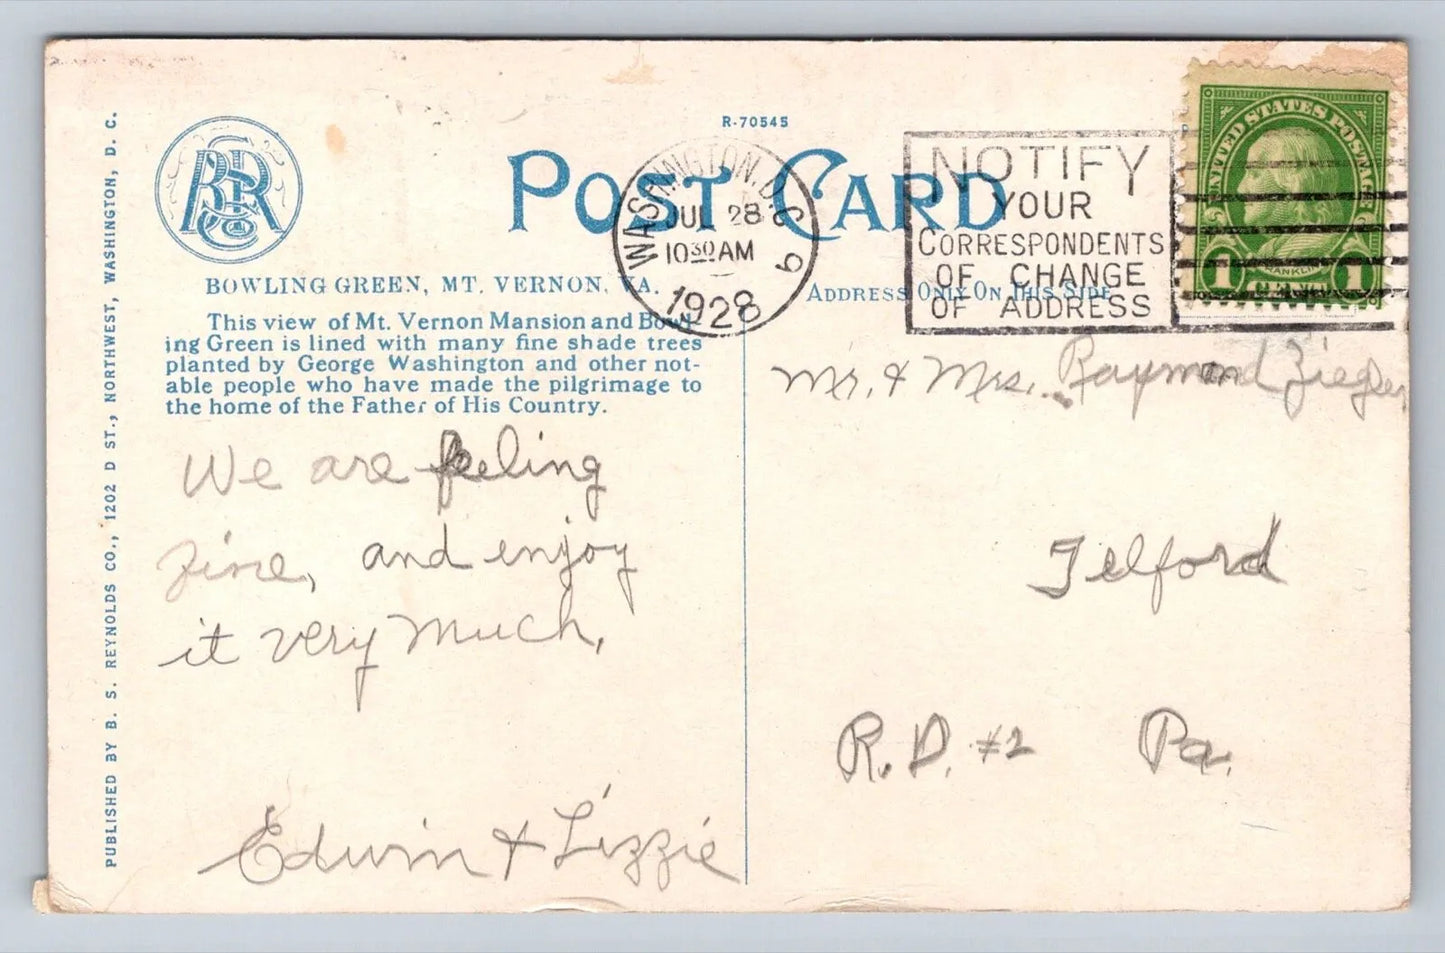 R-70545
POST CARD
WASHINGTON, D.C.
JUL 28
10 30 AM
1928
6
NOTIFY
YOUR
CORRESPONDENTS
OF CHANGE
OF ADDRESS
UNITED STATES POSTAGE
FRANKLIN
1 CENT 1
BSRCo
BOWLING GREEN, MT. VERNON, VA.
This view of Mt. Vernon Mansion and Bowl-
ing Green is lined with many fine shade trees
planted by George Washington and other not-
able people who have made the pilgrimage to
the home of the Father of His Country.
ADDRESS ONLY ON THIS SIDE
We are feeling
fine, and enjoy
it very much,
Edwin & Lizzie
Mr. & Mrs. Raymond Ziegler
Telford
R.D. #2 Pa.
PUBLISHED BY B. S. REYNOLDS CO., 1202 D ST., NORTHWEST, WASHINGTON, D. C.